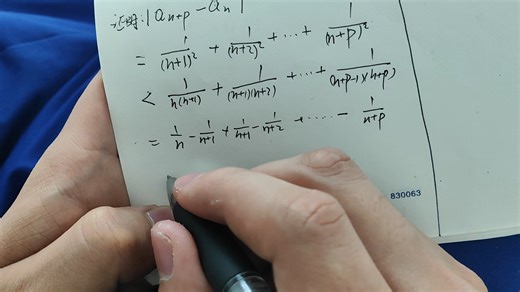 证明:|a_{n+p} - a_n|
= \frac{1}{(n+1)^2} + \frac{1}{(n+2)^2} + ... + \frac{1}{(n+p)^2}
< \frac{1}{n(n+1)} + \frac{1}{(n+1)(n+2)} + ... + \frac{1}{(n+p-1)(n+p)}
= \frac{1}{n} - \frac{1}{n+1} + \frac{1}{n+1} - \frac{1}{n+2} + ...... - \frac{1}{n+p}
830063